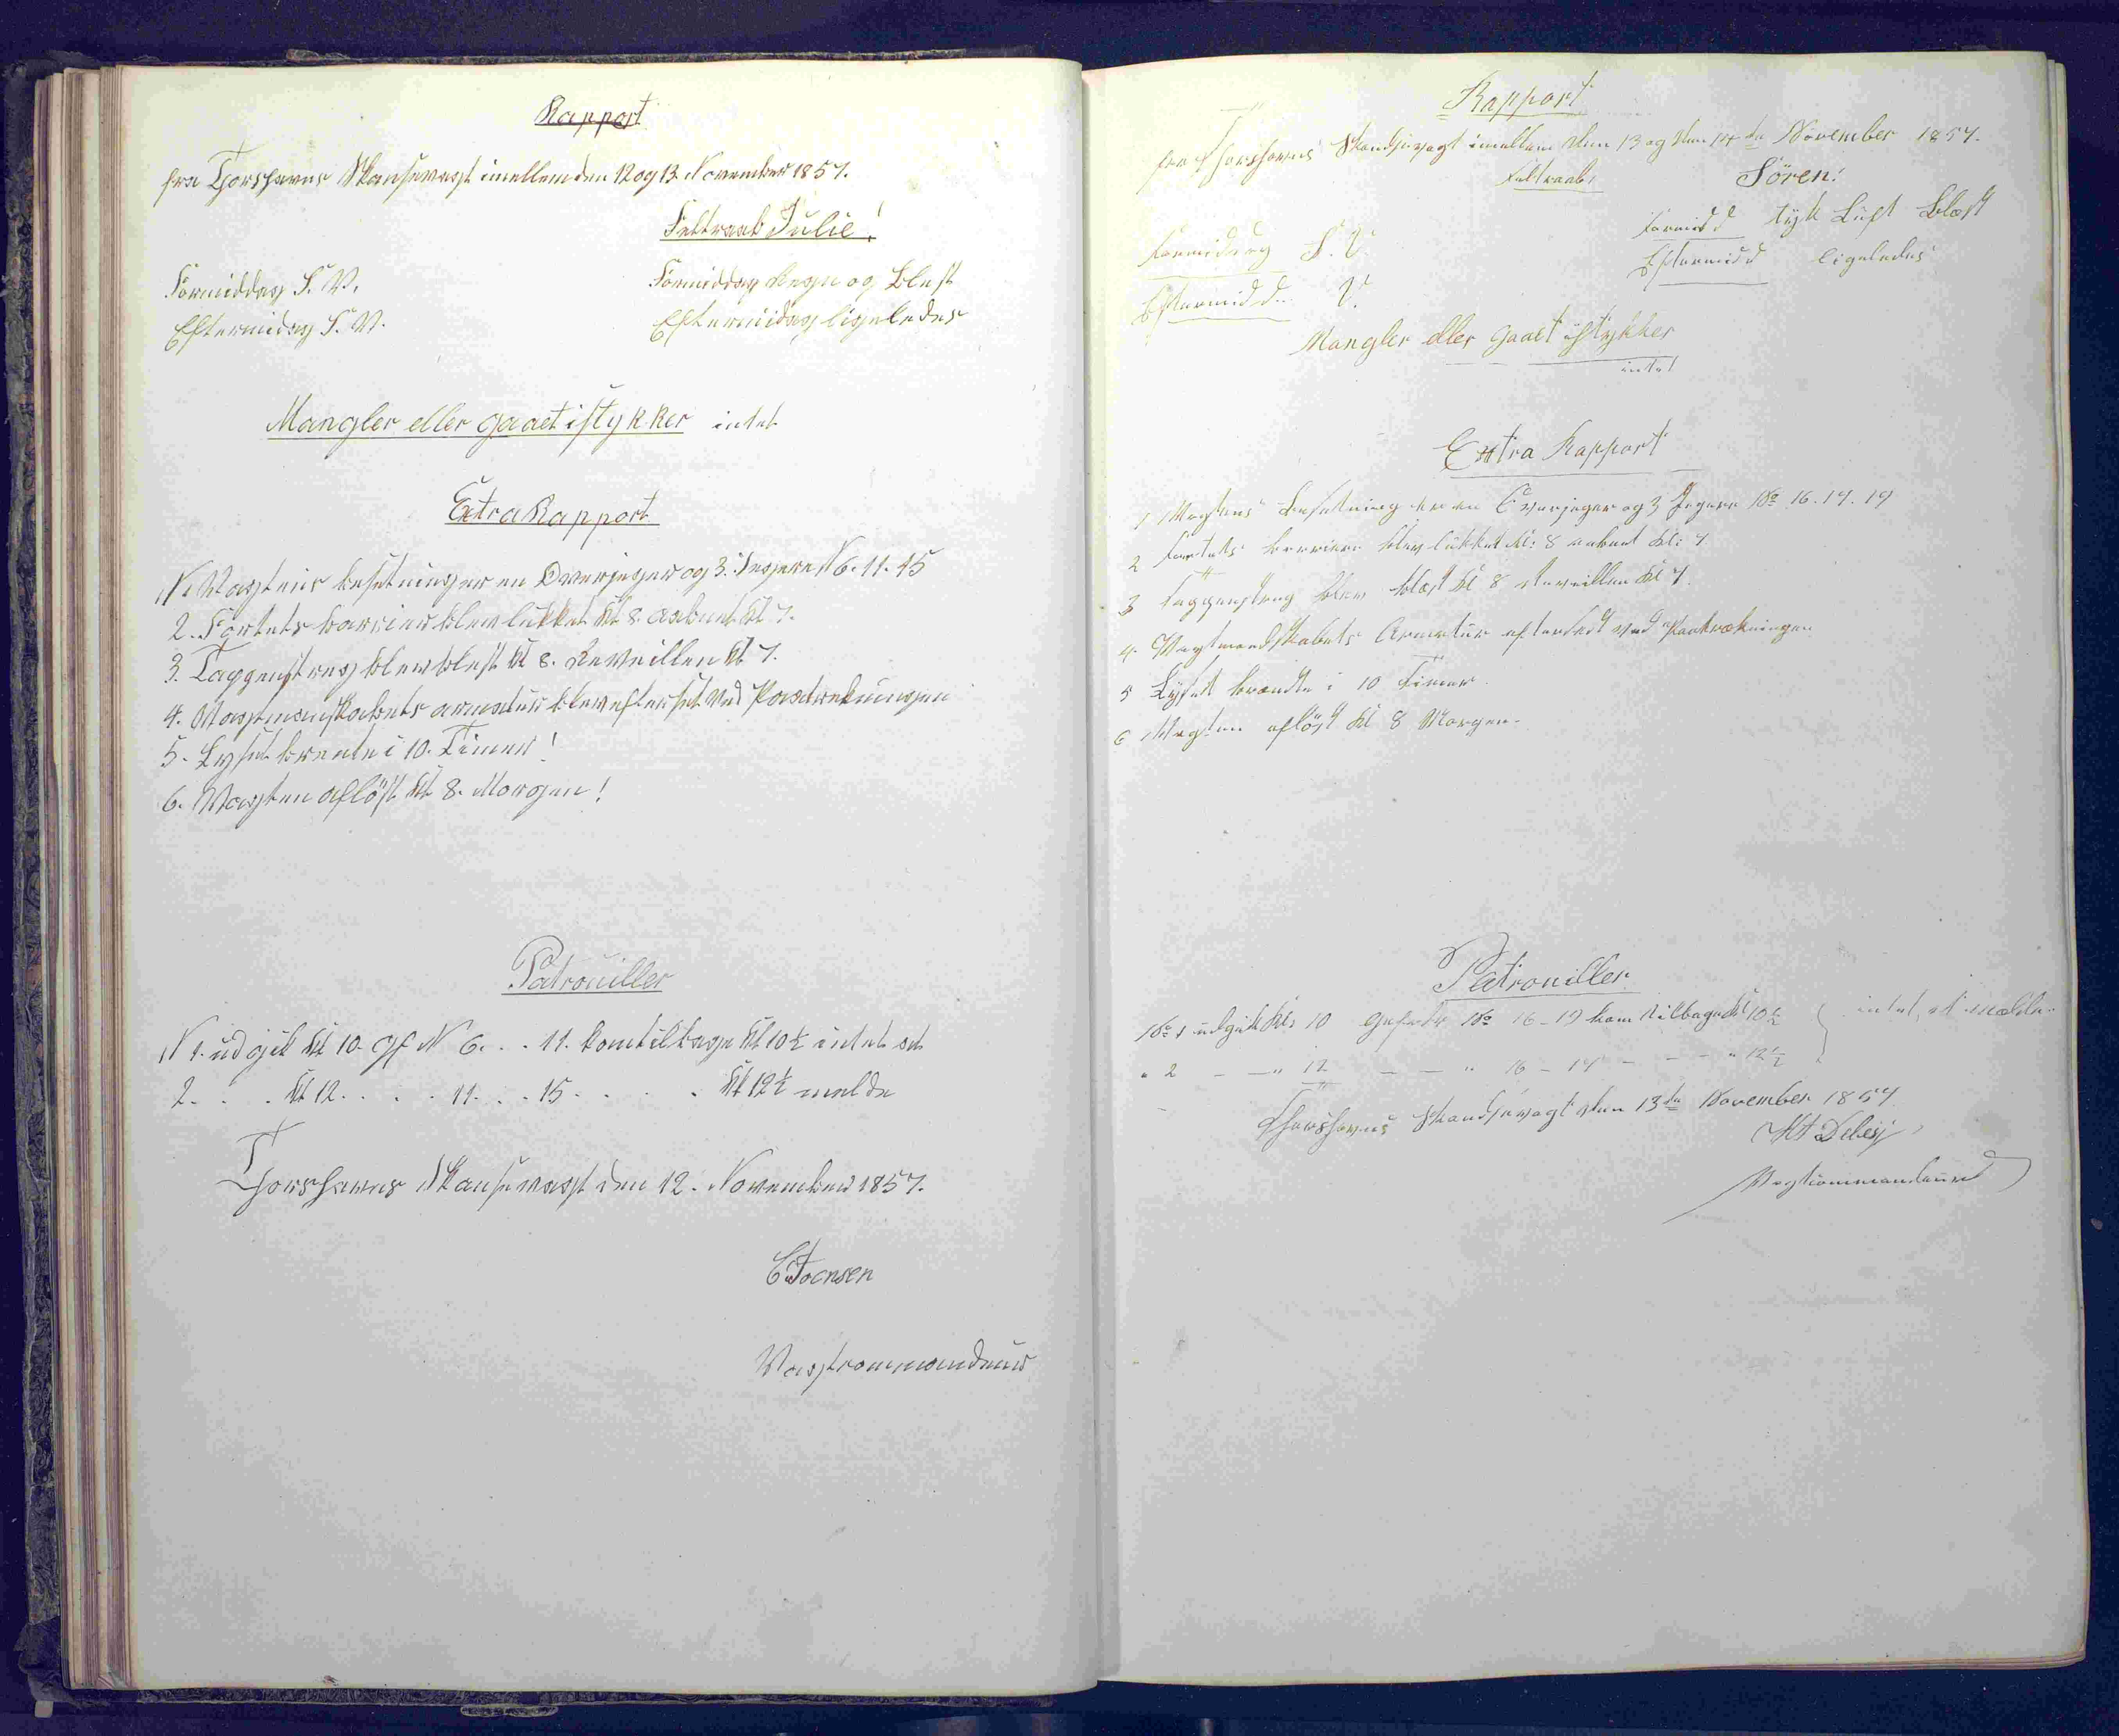 Rapport
fra Thorshavns Skansevagt imellem den 12 og 13 November 1857.
Feltraab Julie!
Formiddag S. V. Formiddag Regn og Blest
Eftermidag S. V. Eftermidag ligeledes
Mangler eller gaaet istykker intet
Extra Rapport
N 1. Vagtens besetning er en Overjeger og 3. Jegere N 6. 11. 15
2. Fortets barrier blev lukket Kl 8. aabnet Kl 7.
3. Tappenstreg blev blest Kl 8. Reveillen Kl 7.
4. Vagtmanskabets armatur blev efterset ved Paatrekningen
5. Lyset brente i 10. Timer!
6. Vagten afløst Kl 8. Morgen!
Patrouiller
N 1. ud gik Kl 10. Gf N 6. . . 11. kom tilbage Kl 10½ intet at
2. . . Kl 12. . . . 11. . . 15. . . . . Kl 12½ melde
Thorshavns Skansevagt den 12. November 1857.
C Joensen
Vagtcommandeur
Rapport
fra Thorshavns Skandsevagt imellem den 13 og den 14de November 1857.
Feltraab, Sören!
Formidag S. V. Formidd tyk Luft Blæst
Eftermidd. V. Eftermidd ligeledes
Mangler eller gaaet istykker
intet
Extra Rapport
1 Vagtens Besetning er en Overjeger og 3 Jegere No 16. 17. 19
2 Fortets barriere blev lukket Kl: 8 aabnet Kl: 7
3 Tappenstreg blev blæst Kl 8 Reveillen Kl 7.
4. Vagtmandskabets Armatur efterseet ved Paatrækningen
5 Lyset brændte i 10 Timer.
6 Vagten aflöst Kl 8 Morgen.
Patrouiller
No 1 udgik Kl: 10 Gefr No 16 - 19 kom tilbage Kl 10½ intet at mælde.
" 2 — — " 12 — — " 16 - 17 — — — " 12½
Thorshavns Skandsevagt den 13de November 1857
Debes
Vagtcommandeur